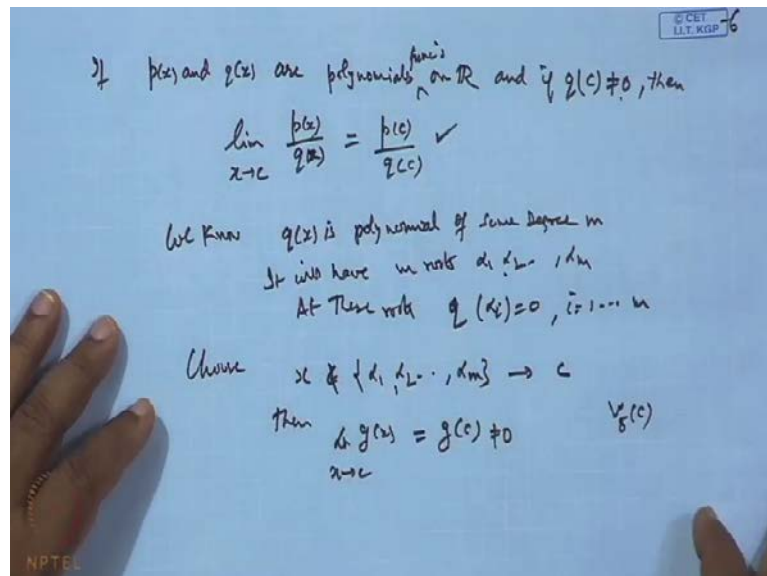 © CET
I.I.T. KGP
-6
If p(x) and q(x) are polynomials func's on ℝ and if q(c) ≠ 0, then
lim x→c p(x)/q(x) = p(c)/q(c) ✓
We know q(x) is polynomial of some degree m
It will have m roots α1 α2.. , αm
At These roots q (αi) = 0, i=1... m
Choose x ∉ {α1, α2.. , αm} → c
then lim x→c q(x) = q(c) ≠ 0
(c)
NPTEL